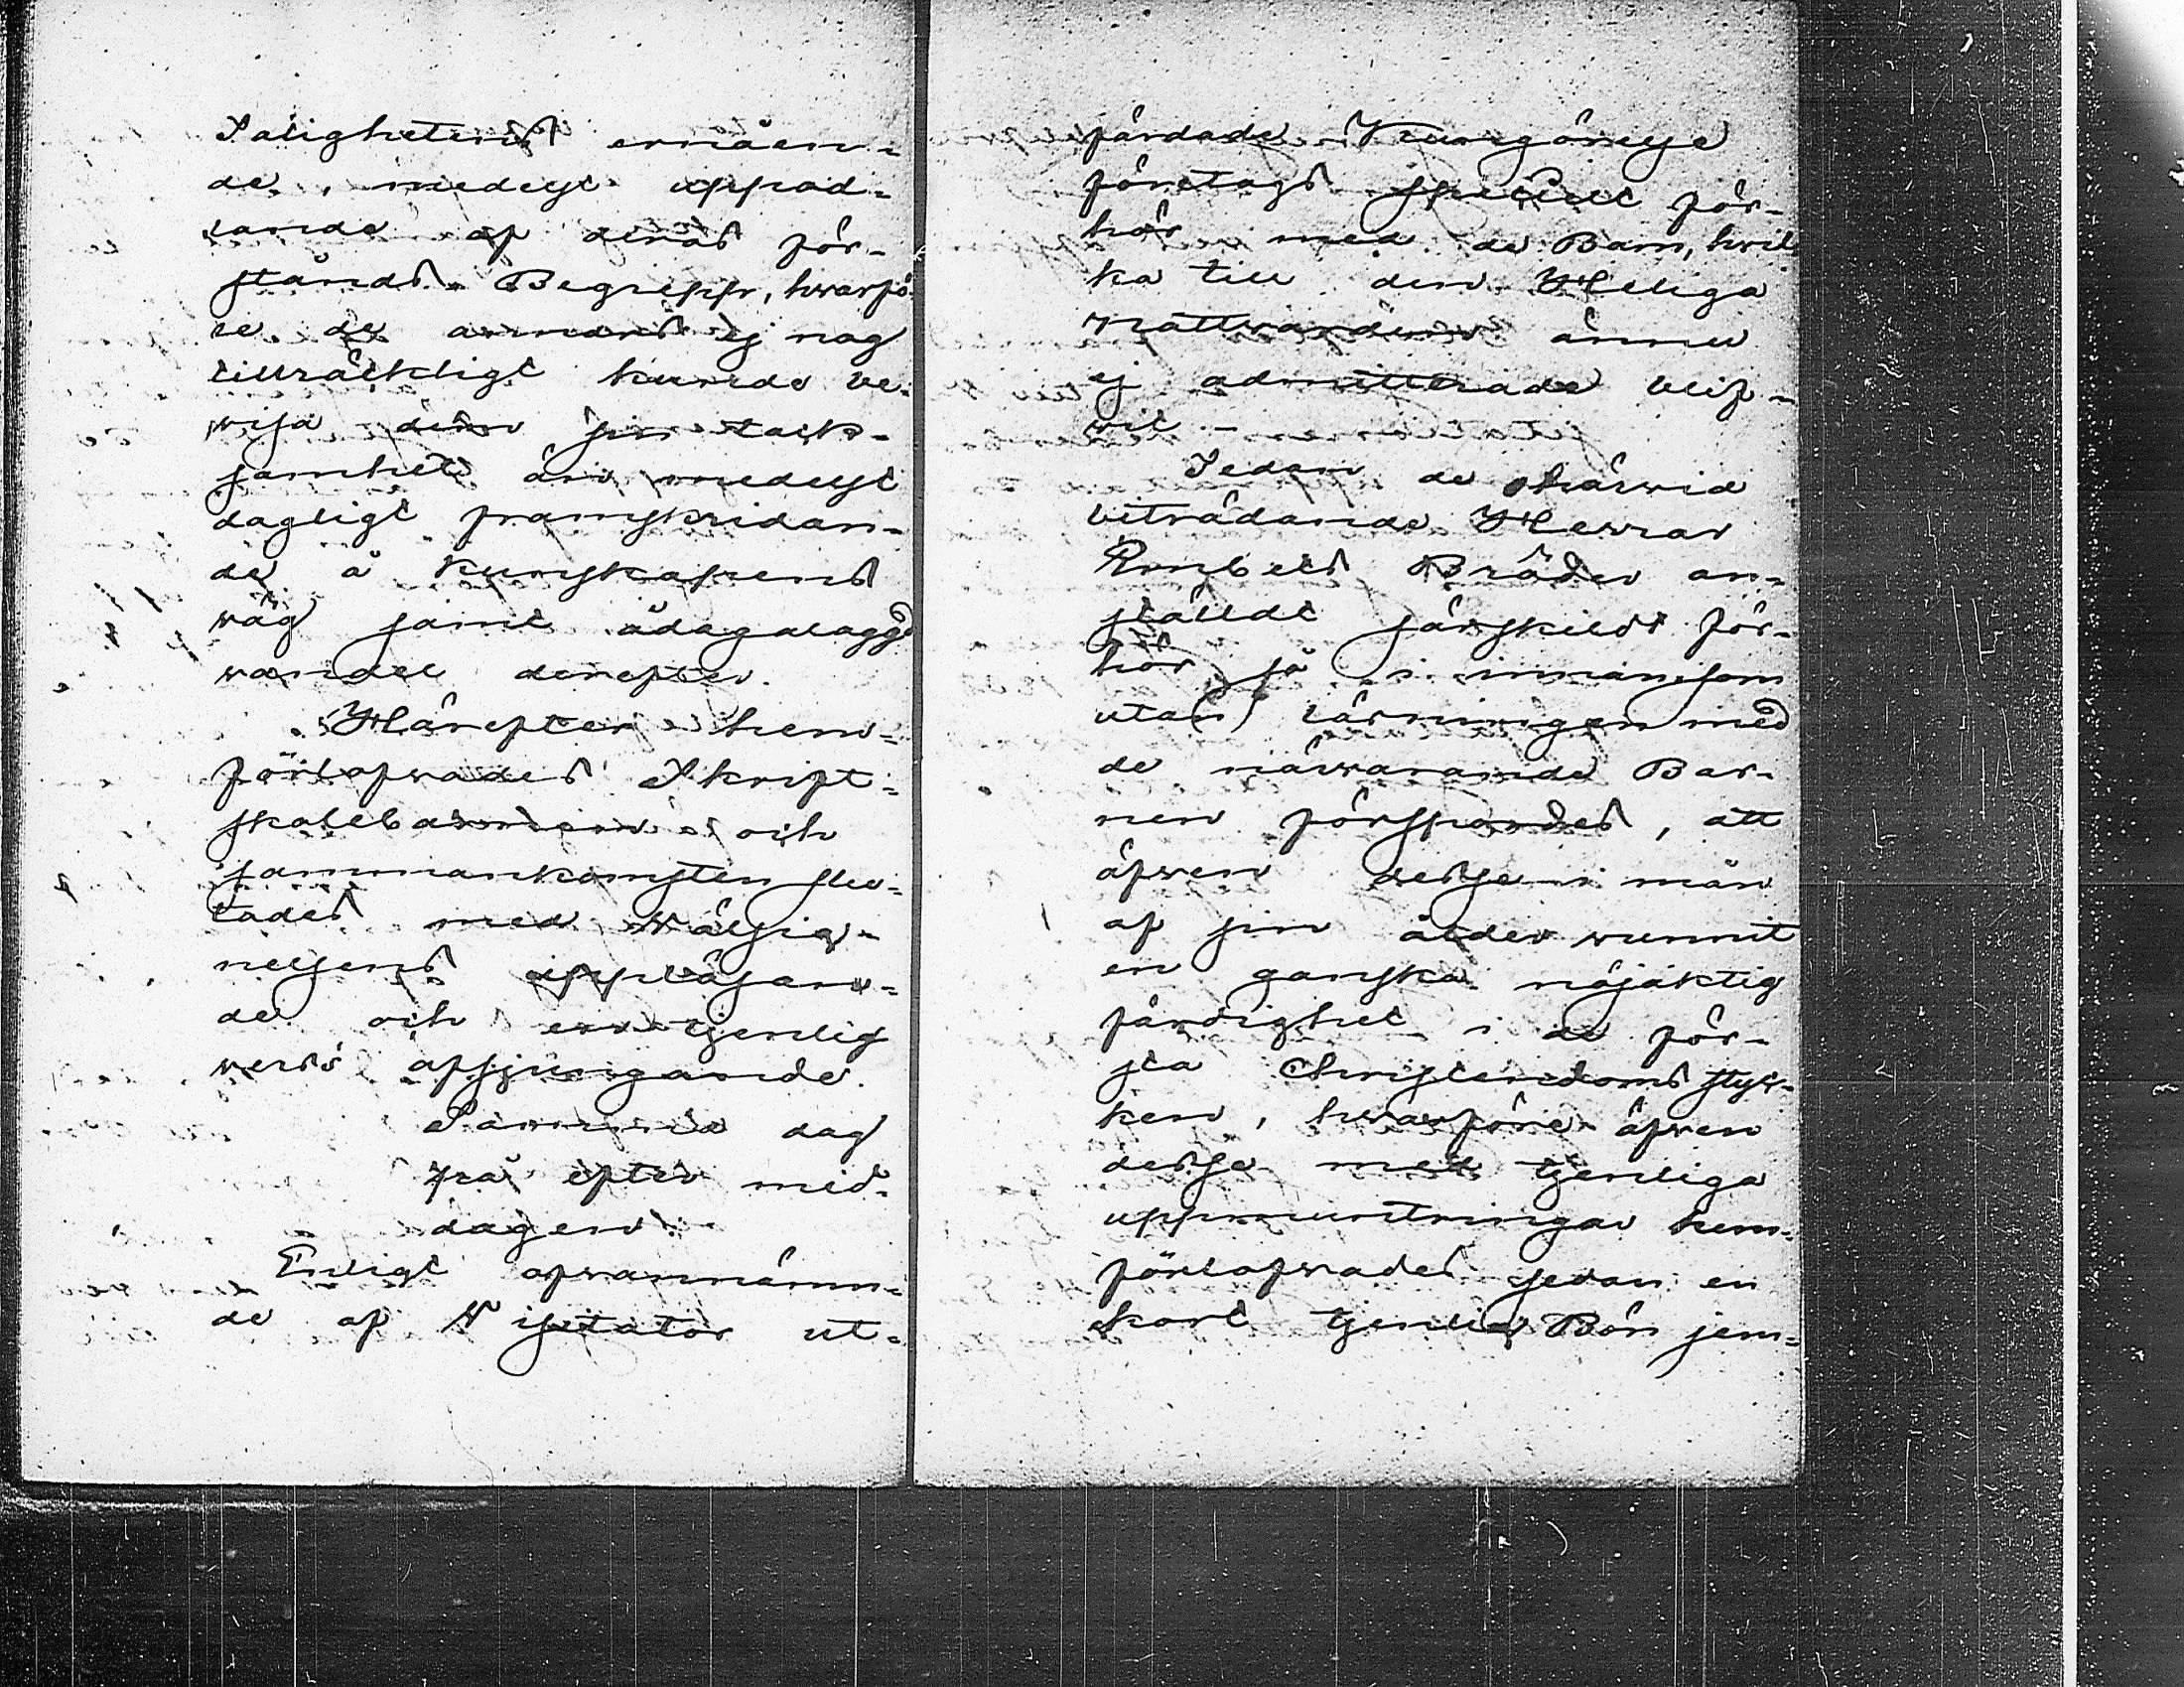 Saligheten&s ernåen-
de, medelst uppod-
lande af deras för-
stånds Begrepp, hvarfö-
re de annars ej nog
tillräckligt kunde be-
wisa dem sin tack-
samhet än medelst
dagligt framskridan-
de å kunskapens
wäg samt ådagalaggd
wandel derefter.
Härefter hem-
förlofwades Skrift-
skolebarnen och
sammankomsten slu-
tades med wälsig-
nelsens uppläsan-
de och en tjenlig
werss afsjungande.
Samma dag
på efter mid-
dagen.
Enligt ofwannämn-
de af Visitator ut-
färdade Kungörelse
företogs speciell för-
hör med de Barn, hvil-
ka till den Heliga
Nattwarden ännu
ej admitterade blif-
wit.
Sedan de härwid
biträdande Herrar
Embets Bröder an-
ställdt särskildt för-
hör så i innan som
utan läsningen med
de närwarande Bar-
nen försporde&s, att
äfwen desse i mån
af sin ålder wunnit
en ganska nöjaktig
färdighet i de för-
sta Christendoms styc-
ken, hwarföre äfwen
desse med tjenliga
uppmuntringar hem-
förlofwades sedan en
kort tjenlig Bön jem-